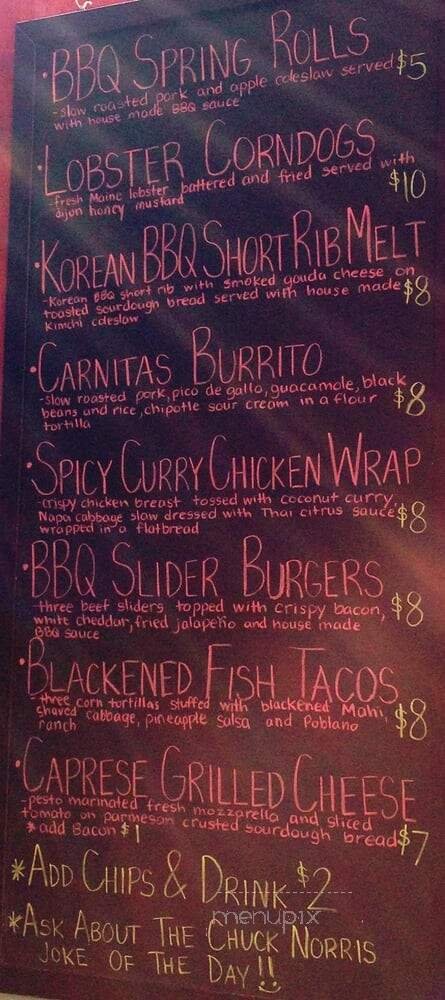 •BBQ SPRING ROLLS
-slow roasted pork and apple coleslaw served $5
with house made BBQ sauce
•LOBSTER CORNDOGS
-fresh Maine lobster battered and fried served with
dijon honey mustard $10
•KOREAN BBQ SHORT RIB MELT
-Korean BBQ short rib with smoked gouda cheese on
toasted sourdough bread served with house made $8
kimchi coleslaw
•CARNITAS BURRITO
-slow roasted pork, pico de gallo, guacamole, black
beans and rice, chipotle sour cream in a flour $8
tortilla
•SPICY CURRY CHICKEN WRAP
-crispy chicken breast tossed with coconut curry,
Napa cabbage slaw dressed with Thai citrus sauce $8
wrapped in a flatbread
•BBQ SLIDER BURGERS
-three beef sliders topped with crispy bacon, $8
white cheddar, fried jalapeño and house made
BBQ sauce
•BLACKENED FISH TACOS
-three corn tortillas stuffed with blackened Mahi,
shaved cabbage, pineapple salsa and Poblano $8
ranch
•CAPRESE GRILLED CHEESE
-pesto marinated fresh mozzarella and sliced
tomato on parmesan crusted sourdough bread $7
*add Bacon $1
*ADD CHIPS & DRINK $2
menupix
*ASK ABOUT THE CHUCK NORRIS
JOKE OF THE DAY!!